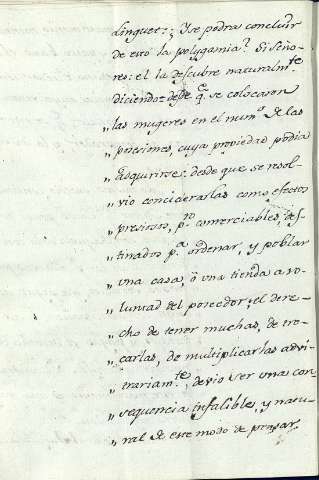 Linguet: ¿Y se podrá concluir
de esto la polygamia? Si Seño-
res: el la descubre naturalm.te
diciendo: desde q.e se colocaron
„ las mugeres en el num.o de las
„ posesiones, cuya propiedad podia
„ adquirirse: desde que se resol-
„ vio conciderarlas como efectos
„ presiosos, p.o comerciables, des-
„ tinados p.a ordenar, y poblar
„ una casa, ö una tienda a vo-
„ luntad del poseedor; el dere-
„ cho de tener muchas, de tro-
„ carlas, de multiplicarlas advi-
„ trariam.te, devio ser una con-
„ sequencia infalible, y natu-
„ ral de este modo de pensar.